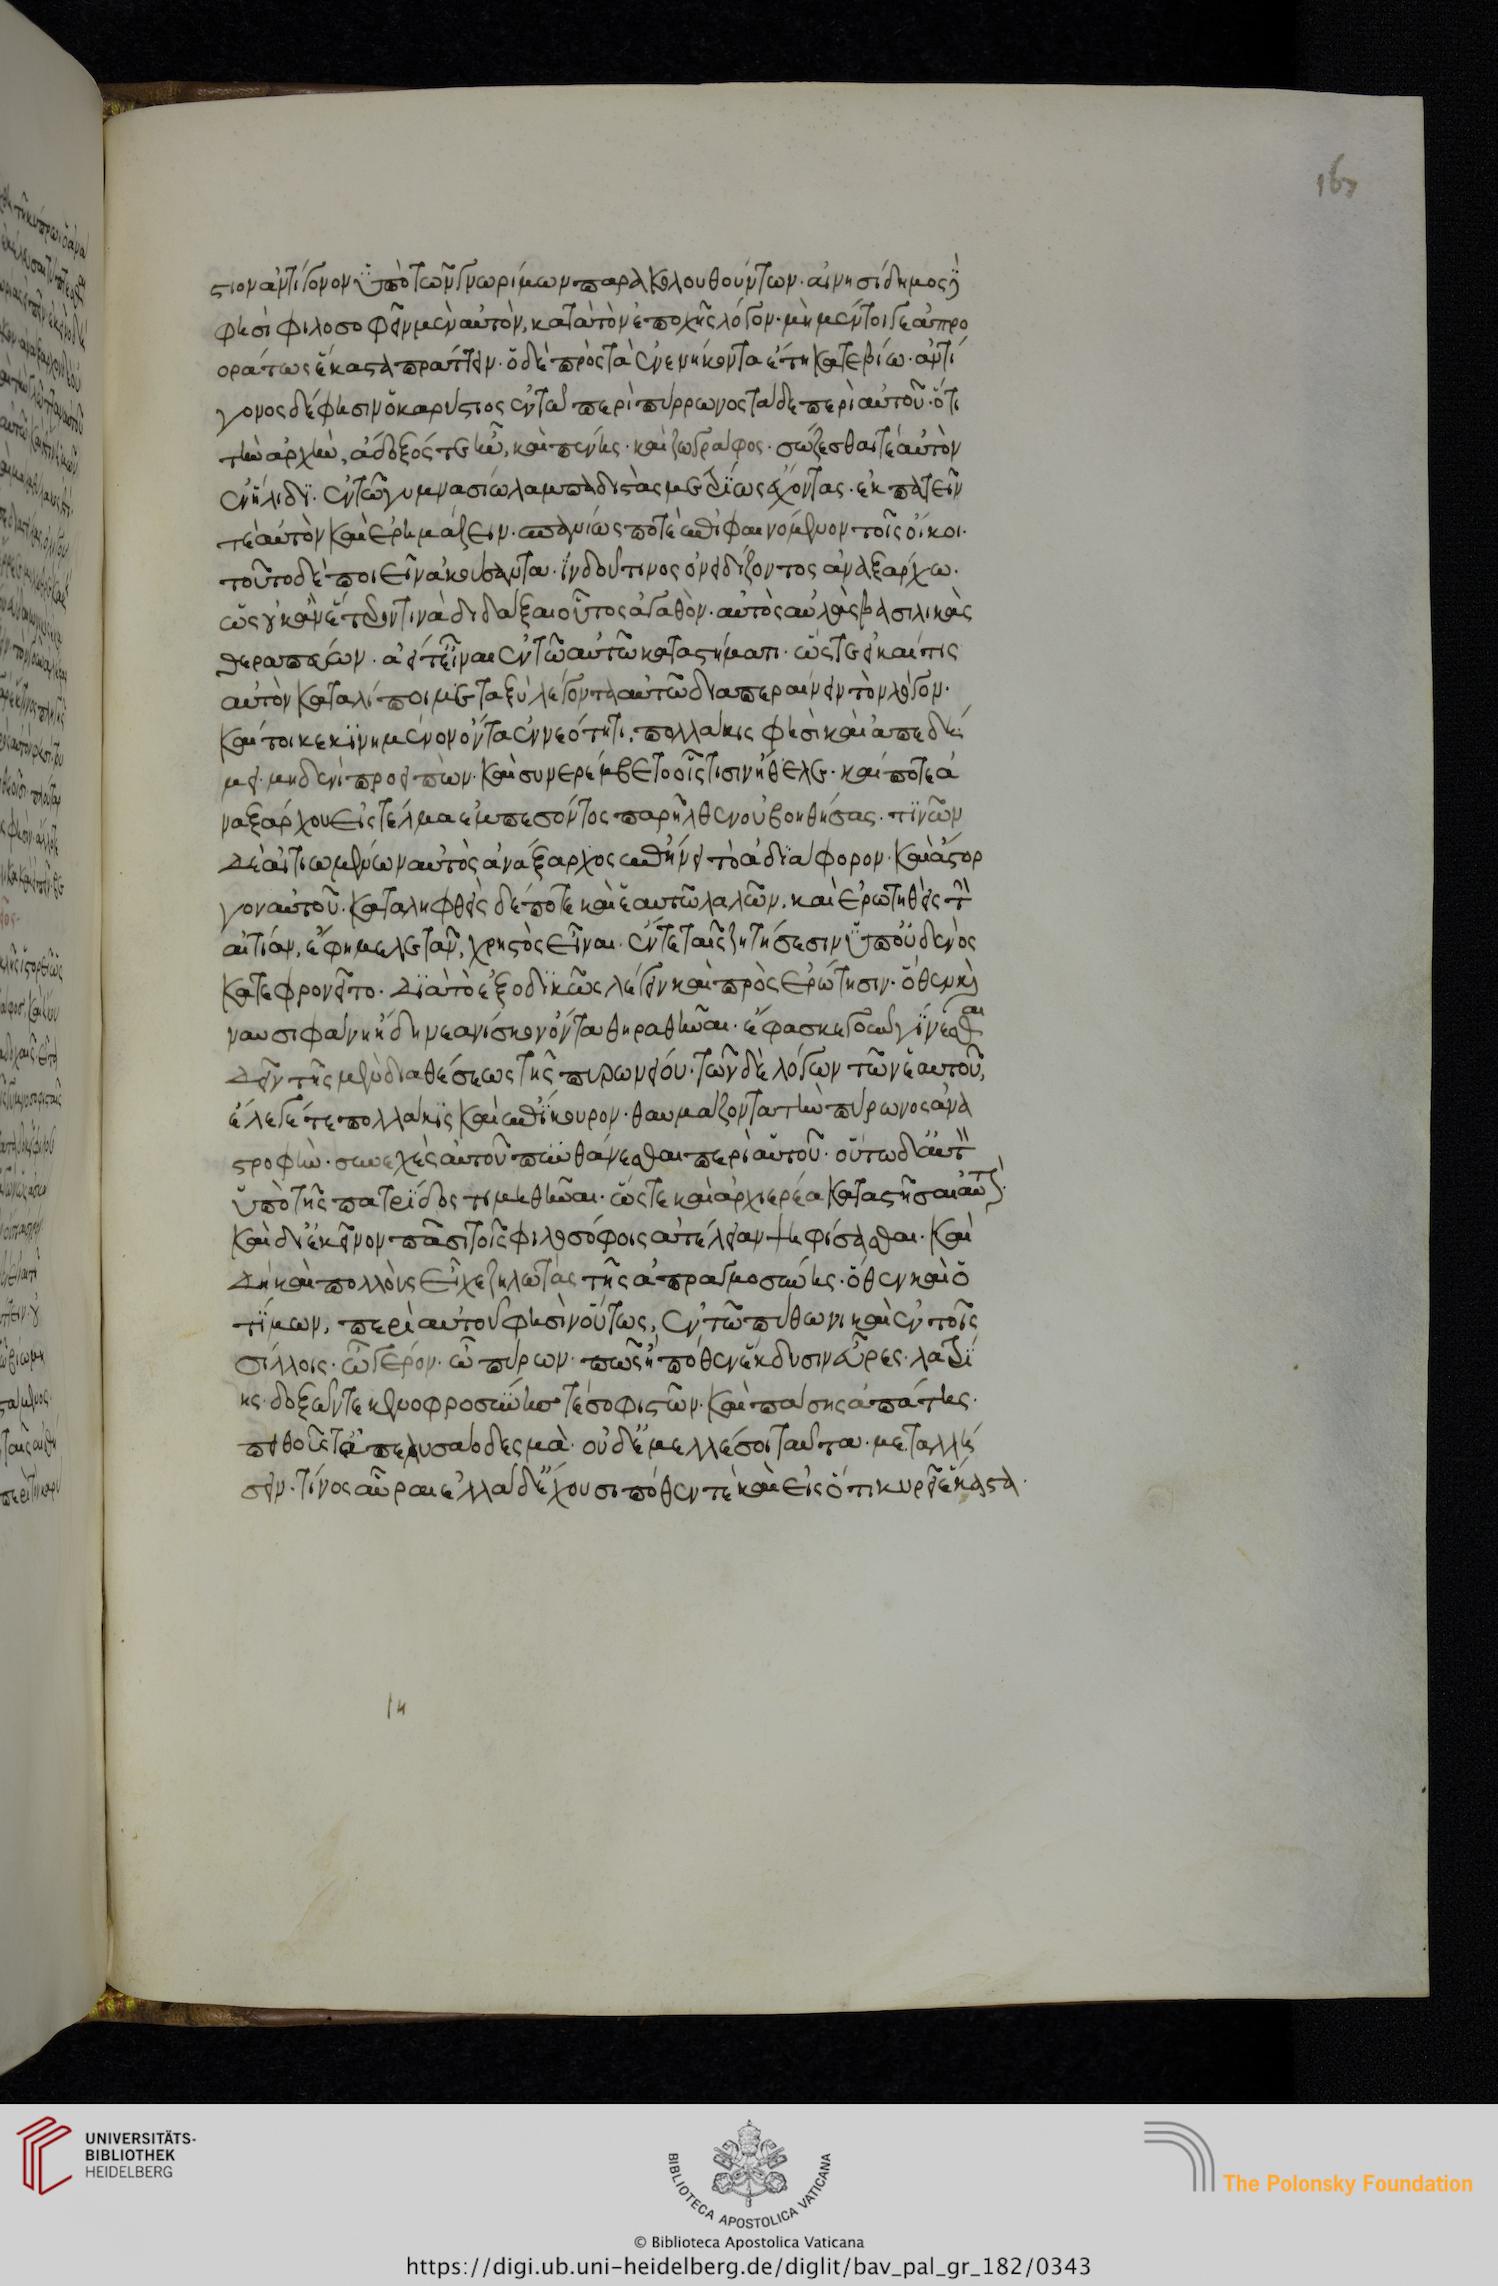 167
στιον ἀντίγονον ὑπὸ τῶν γνωρίμων παρακολουθούντων· αἰνησίδημος
φησὶ φιλοσοφεῖν μὲν αὐτὸν, κατὰ τὸν ἐποχῆς λόγον· μὴ μέντοι γε ἀπρο
οράτως ἕκαστα πράττειν· ὁ δὲ πρὸς τὰ ἐνενήκοντα ἔτη κατεβίω· ἀντί
γονος δέ φησιν ὁ καρύστιος ἐν τῶ περὶ πύρρωνος τάδε περὶ αὐτοῦ· ὅτι
τὴν ἀρχὴν, ἄδοξός τε ἦν, καὶ πένης· καὶ ζωγράφος· σώζεσθαί τε αὐτὸν
ἐν ἤλιδι· ἐν τῶ γυμνασίω λαμπαδιστὰς μετρίως ἔχοντας· ἐκπατεῖν
τε αὐτὸν καὶ ἐρημάζειν· σπανίως ποτὲ ἐπιφαινόμενον τοῖς οἴκοι·
τοῦτο δὲ ποιεῖν ἀκούσαντα· ἰνδοῦ τινος ὀνειδίζοντος ἀναξάρχω·
ὡς οὐκ ἂν ἕτερόν τινα διδάξαι οὗτος ἀγαθὸν· αὐτὸς αὐλὰς βασιλικὰς
θεραπεύων· ἀεί τε εἶναι ἐν τῶ αὐτῶ καταστήματι· ὥστε εἰ καί τις
αὐτὸν καταλίποι μεταξὺ λέγοντα αὐτῶ διαπεραίνειν τὸν λόγον·
καίτοι κεκινημένον ὄντα ἐν νεότητι· πολλάκις φησὶ καὶ ἀπεδή
μει· μηδενὶ προειπὼν· καὶ συνερέμβετο οἷς τισιν ἤθελε· καί ποτε ἀ
ναξάρχου εἰς τέλμα ἐμπεσόντος παρῆλθεν οὐ βοηθήσας· τινῶν
δὲ αἰτιωμένων αὐτὸς ἀνάξαρχος ἐπήνει τὸ ἀδιάφορον· καὶ ἄστορ
γον αὐτοῦ· καταληφθεὶς δέ ποτε καὶ ἑαυτῶ λαλῶν, καὶ ἐρωτηθεὶς τὴν
αἰτίαν, ἔφη μελετᾶν, χρηστὸς εἶναι· ἔν τε ταῖς ζητήσεσιν ὑπ' οὐδενὸς
κατεφρονεῖτο· διὰ τὸ ἐξοδικῶς λέγειν καὶ πρὸς ἐρώτησιν· ὅθεν καὶ
ναυσιφάνη ἤδη νεανίσκον ὄντα θηραθῆναι· ἔφασκε γοῦν γίνεσθαι
δεῖν τῆς μὲν διαθέσεως τῆς πυρωνείου· τῶν δὲ λόγων τῶν ἑαυτοῦ,
ἔλεγέ τε πολλάκις καὶ ἐπίκουρον· θαυμάζοντα τὴν πύρωνος ἀνα
στροφὴν· συνεχὲς αὐτοῦ πυνθάνεσθαι περὶ αὐτοῦ· οὕτω δ' αὐτὸν
ὑπὸ τῆς πατρίδος τιμηθῆναι· ὥστε καὶ ἀρχιερέα καταστῆσαι αὐτὸν·
καὶ δι' ἐκεῖνον πᾶσι τοῖς φιλοσόφοις ἀτέλειαν ψηφίσασθαι· καὶ
δὴ καὶ πολλοὺς εἶχε ζηλωτὰς τῆς ἀπραγμοσύνης· ὅθεν καὶ ὁ
τίμων, περὶ αὐτοῦ φησὶν οὕτως, ἐν τῶ πύθωνι καὶ ἐν τοῖς
σίλλοις· ὦ γέρον· ὦ πύρων· πῶς ἢ πόθεν ἔκδυσιν εὗρες· λατρί
ης· δοξῶν τε κενοφροσύνης τε σοφιστῶν· καὶ πάσης ἀπάτης·
πειθοῦς τ' ἀπελύσαο δεσμὰ· οὐδ' ἔμελλέ σοι ταῦτα· μεταλλή
σειν· τίνος αὖραι ἑλλάδ' ἔχουσι πόθεν τε καὶ εἰς ὅτι κυρεῖ ἕκαστα·
UNIVERSITÄTS-
BIBLIOTHEK
HEIDELBERG
BIBLIOTECA APOSTOLICA VATICANA
The Polonsky Foundation
© Biblioteca Apostolica Vaticana
https://digi.ub.uni-heidelberg.de/diglit/bav_pal_gr_182/0343